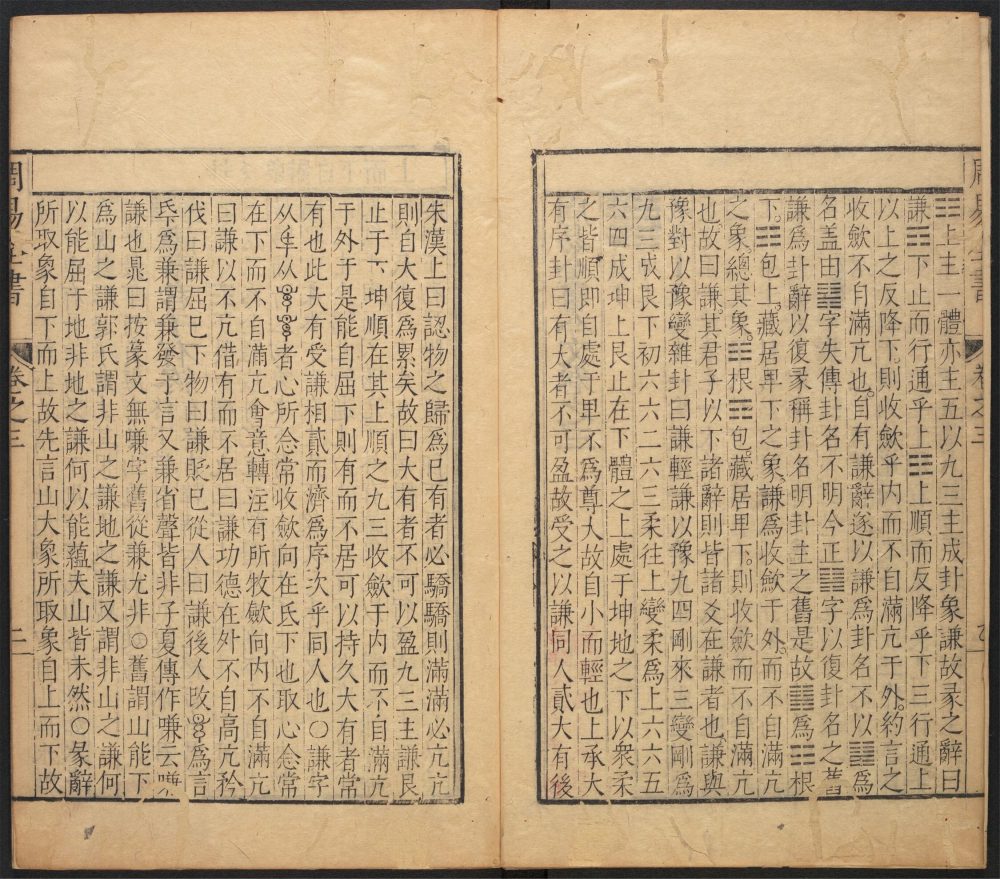 ☰上主一體亦主五以九三主成卦象謙故彖之辭曰
謙☰下止而行通乎上☷上順而反降乎下三行通上
以上之反降下則收斂乎內而不自滿亢于外約言之
收斂不自滿亢也自有謙辭遂以謙為卦名不以䷎為
名盖由䷎字失傳卦名不明今正䷎字以復卦名之舊
謙為卦辭以復彖稱卦名明卦主之舊是故䷎為☷根
下☷包上藏居畀下之象謙為收斂于外而不自滿亢
之象總其象☶根☷包藏居畀下則收斂而不自滿亢
也故曰謙其君子以下諸辭則皆諸爻在謙者也謙與
豫對以豫變雜卦曰謙輕謙以豫九四剛來三變剛為
九三成艮下初六六二六三柔往上變柔為上六六五
六四成坤上艮止在下體之上處于坤地之下以衆柔
之皆順即自處于畀不為尊大故自小而輕也上承大
有序卦曰有大者不可盈故受之以謙同人貳大有後
周易全書 卷之三
朱漢上曰認物之歸為已有者必驕驕則滿滿必亢亢
則自大復為累矣故曰大有者不可以盈九三主謙艮
止于下坤順在其上順之九三收斂于內而不自滿亢
于外于是能自屈下則有而不居可以持久大有者常
有也此大有受謙相貳而濟為序次乎同人也〇謙字
从 从 者心所念常收斂向在氐下也取心念常
在下而不自滿亢會意轉注有所收斂向內不自滿亢
曰謙以不亢借有而不居曰謙功德在外不自高亢矜
伐曰謙屈已下物曰謙貶已從人曰謙後人攺 為言
為兼謂兼發于言又兼省聲皆非子夏傳作嗛云嗛
謙也晁曰按篆文無嗛字舊從兼尤非〇舊謂山能下
為山之謙郭氏謂非山之謙地之謙又謂非山之謙何
以能屈于地非地之謙何以能蘊夫山皆未然〇彖辭
所取象自下而上故先言山大象所取象自上而下故
周易全書 卷之三 二